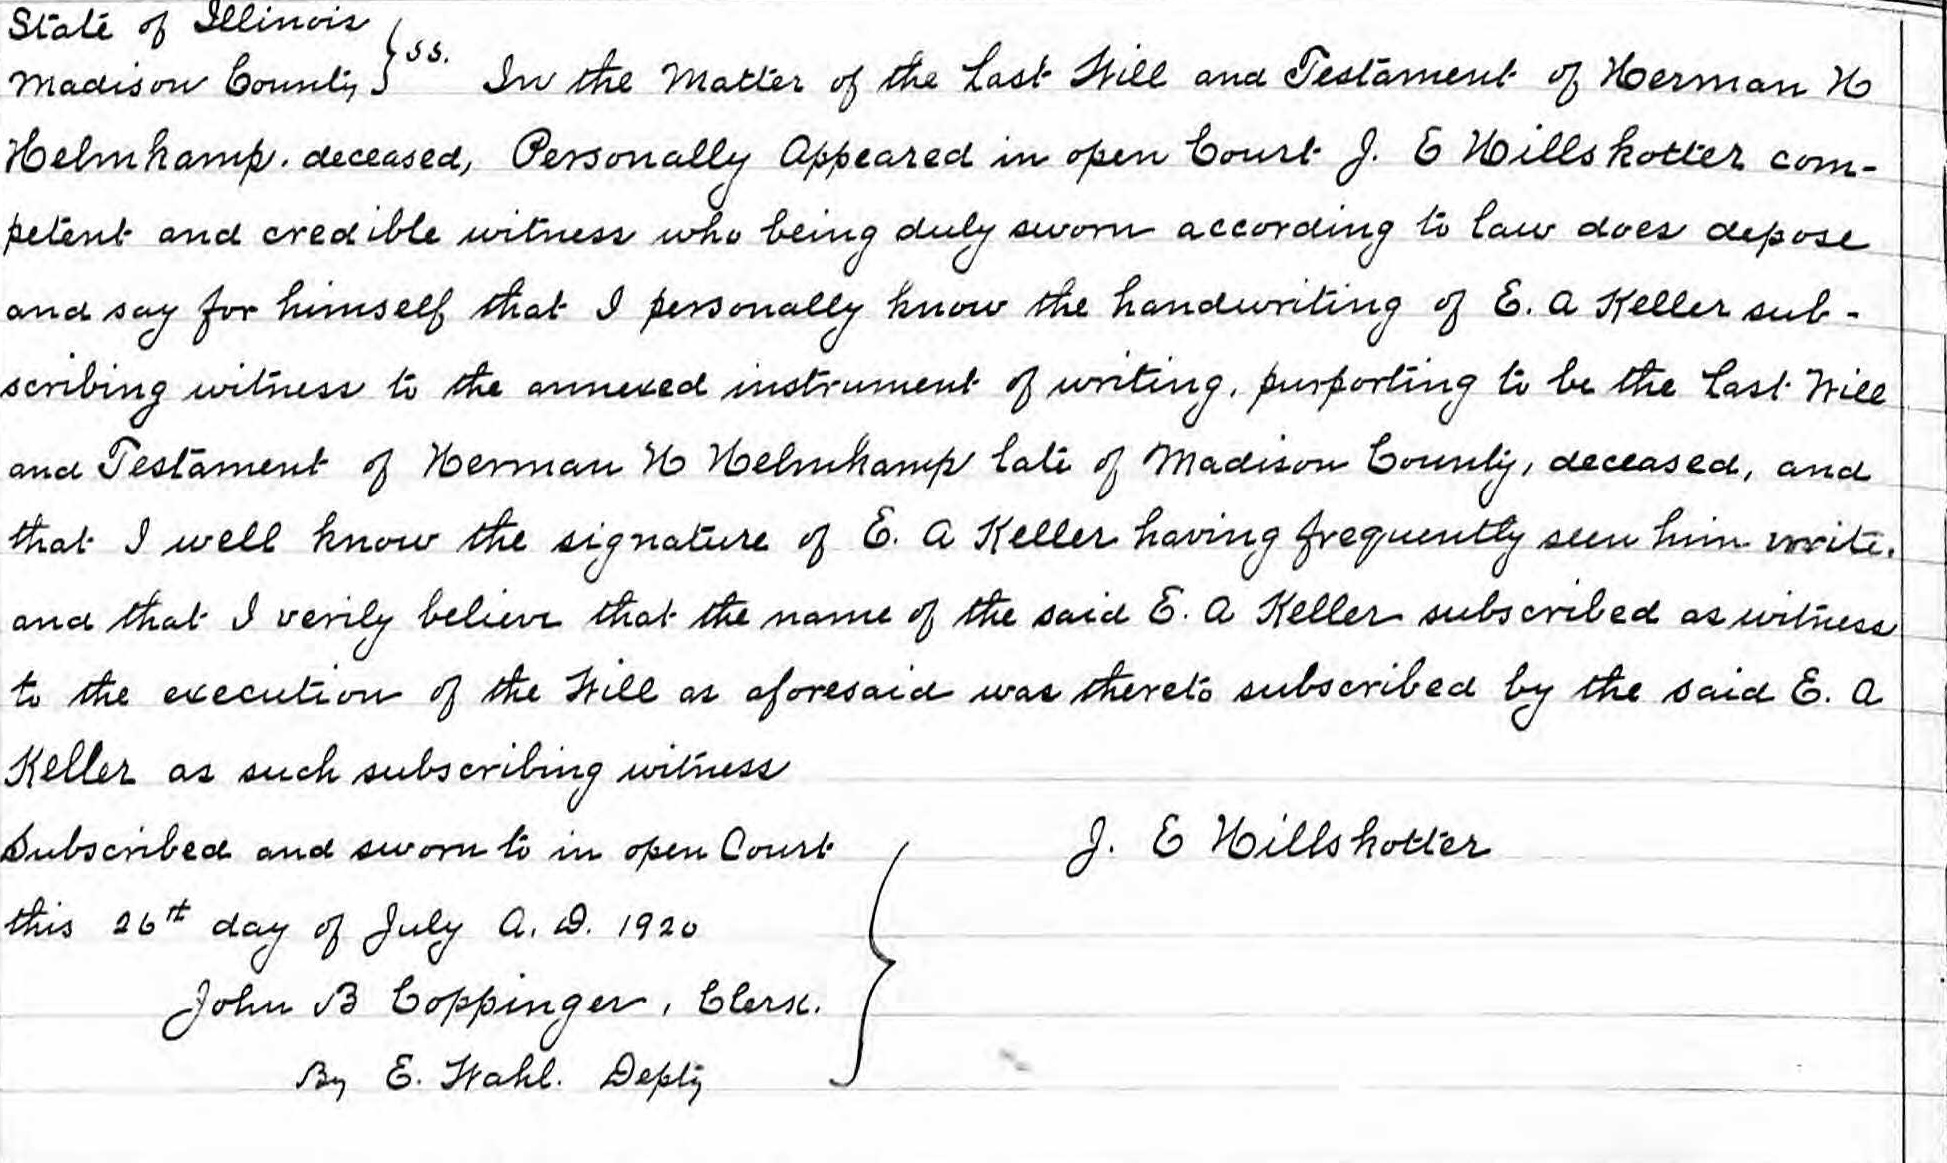 State of Illinois
Madison County } ss. In the Matter of the Last Will and Testament of Herman H
Helmkamp. deceased, Personally Appeared in open Court J. E Hillskotter com-
petent and credible witness who being duly sworn according to law does depose
and say for himself that I personally know the handwriting of E. A Keller sub-
scribing witness to the annexed instrument of writing, purporting to be the Last Will
and Testament of Herman H Helmkamp late of Madison County, deceased, and
that I well know the signature of E. A Keller having frequently seen him write.
and that I verily believe that the name of the said E. A Keller subscribed as witness
to the execution of the Will as aforesaid was thereto subscribed by the said E. A
Keller as such subscribing witness
Subscribed and sworn to in open Court } J. E Hillskotter
this 26th day of July A. D. 1920
John B Coppinger, Clerk.
By E. Wahl. Depty